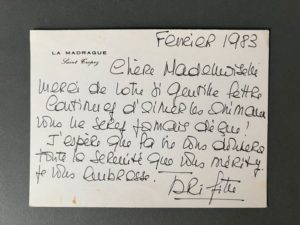 LA MADRAGUE
Saint Tropez
Février 1983
Chère Mademoiselle
merci de votre si gentille lettre
Continuez d'aimer les animaux
vous ne serez jamais déçue !
J'espère que la vie vous donnera
toute la sérénité que vous méritez
je vous embrasse.
Brigitte